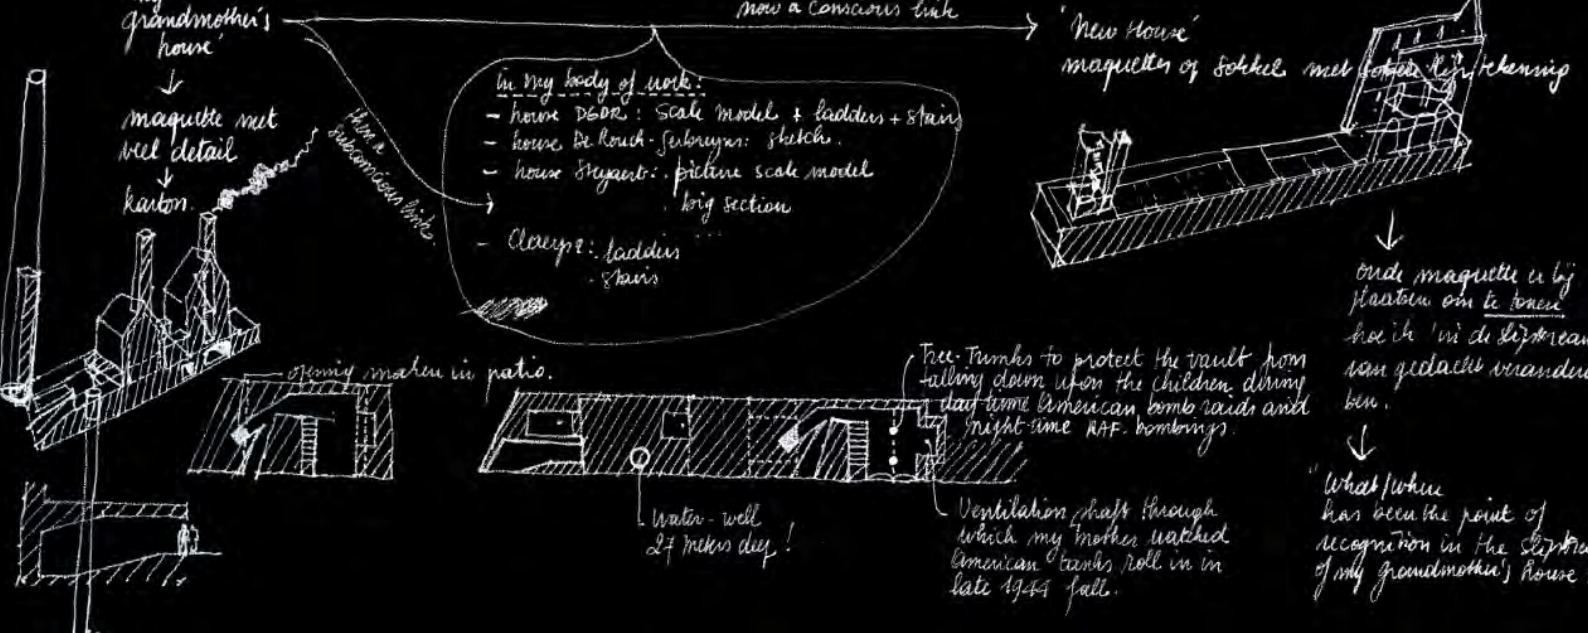 my
grandmother's
house'
maquette met
veel detail
karton.
then a
subconscious link.
now a conscious link
in my body of work:
- house DGDR: scale model + ladders + stairs
- house De Kouch- : sketch.
- house Steyaert: . picture scale model
. big section
...
- : . ladders
. stairs
'New House'
maquettes of sokkel met tekening
oude maquette er bij
plaatsen om te tonen
hoe ik 'in de slipstream
van gedacht veranderd
ben.
"What/where
has been the point of
recognition in the slipstream
of my grandmother's house
opening maken in patio.
Tree-Trunks to protect the vault from
falling down upon the children during
day-time American bomb raids and
night-time RAF-bombings.
water-well
27 meters deep!
Ventilation shaft through
which my mother watched
American tanks roll in in
late 1944 fall.